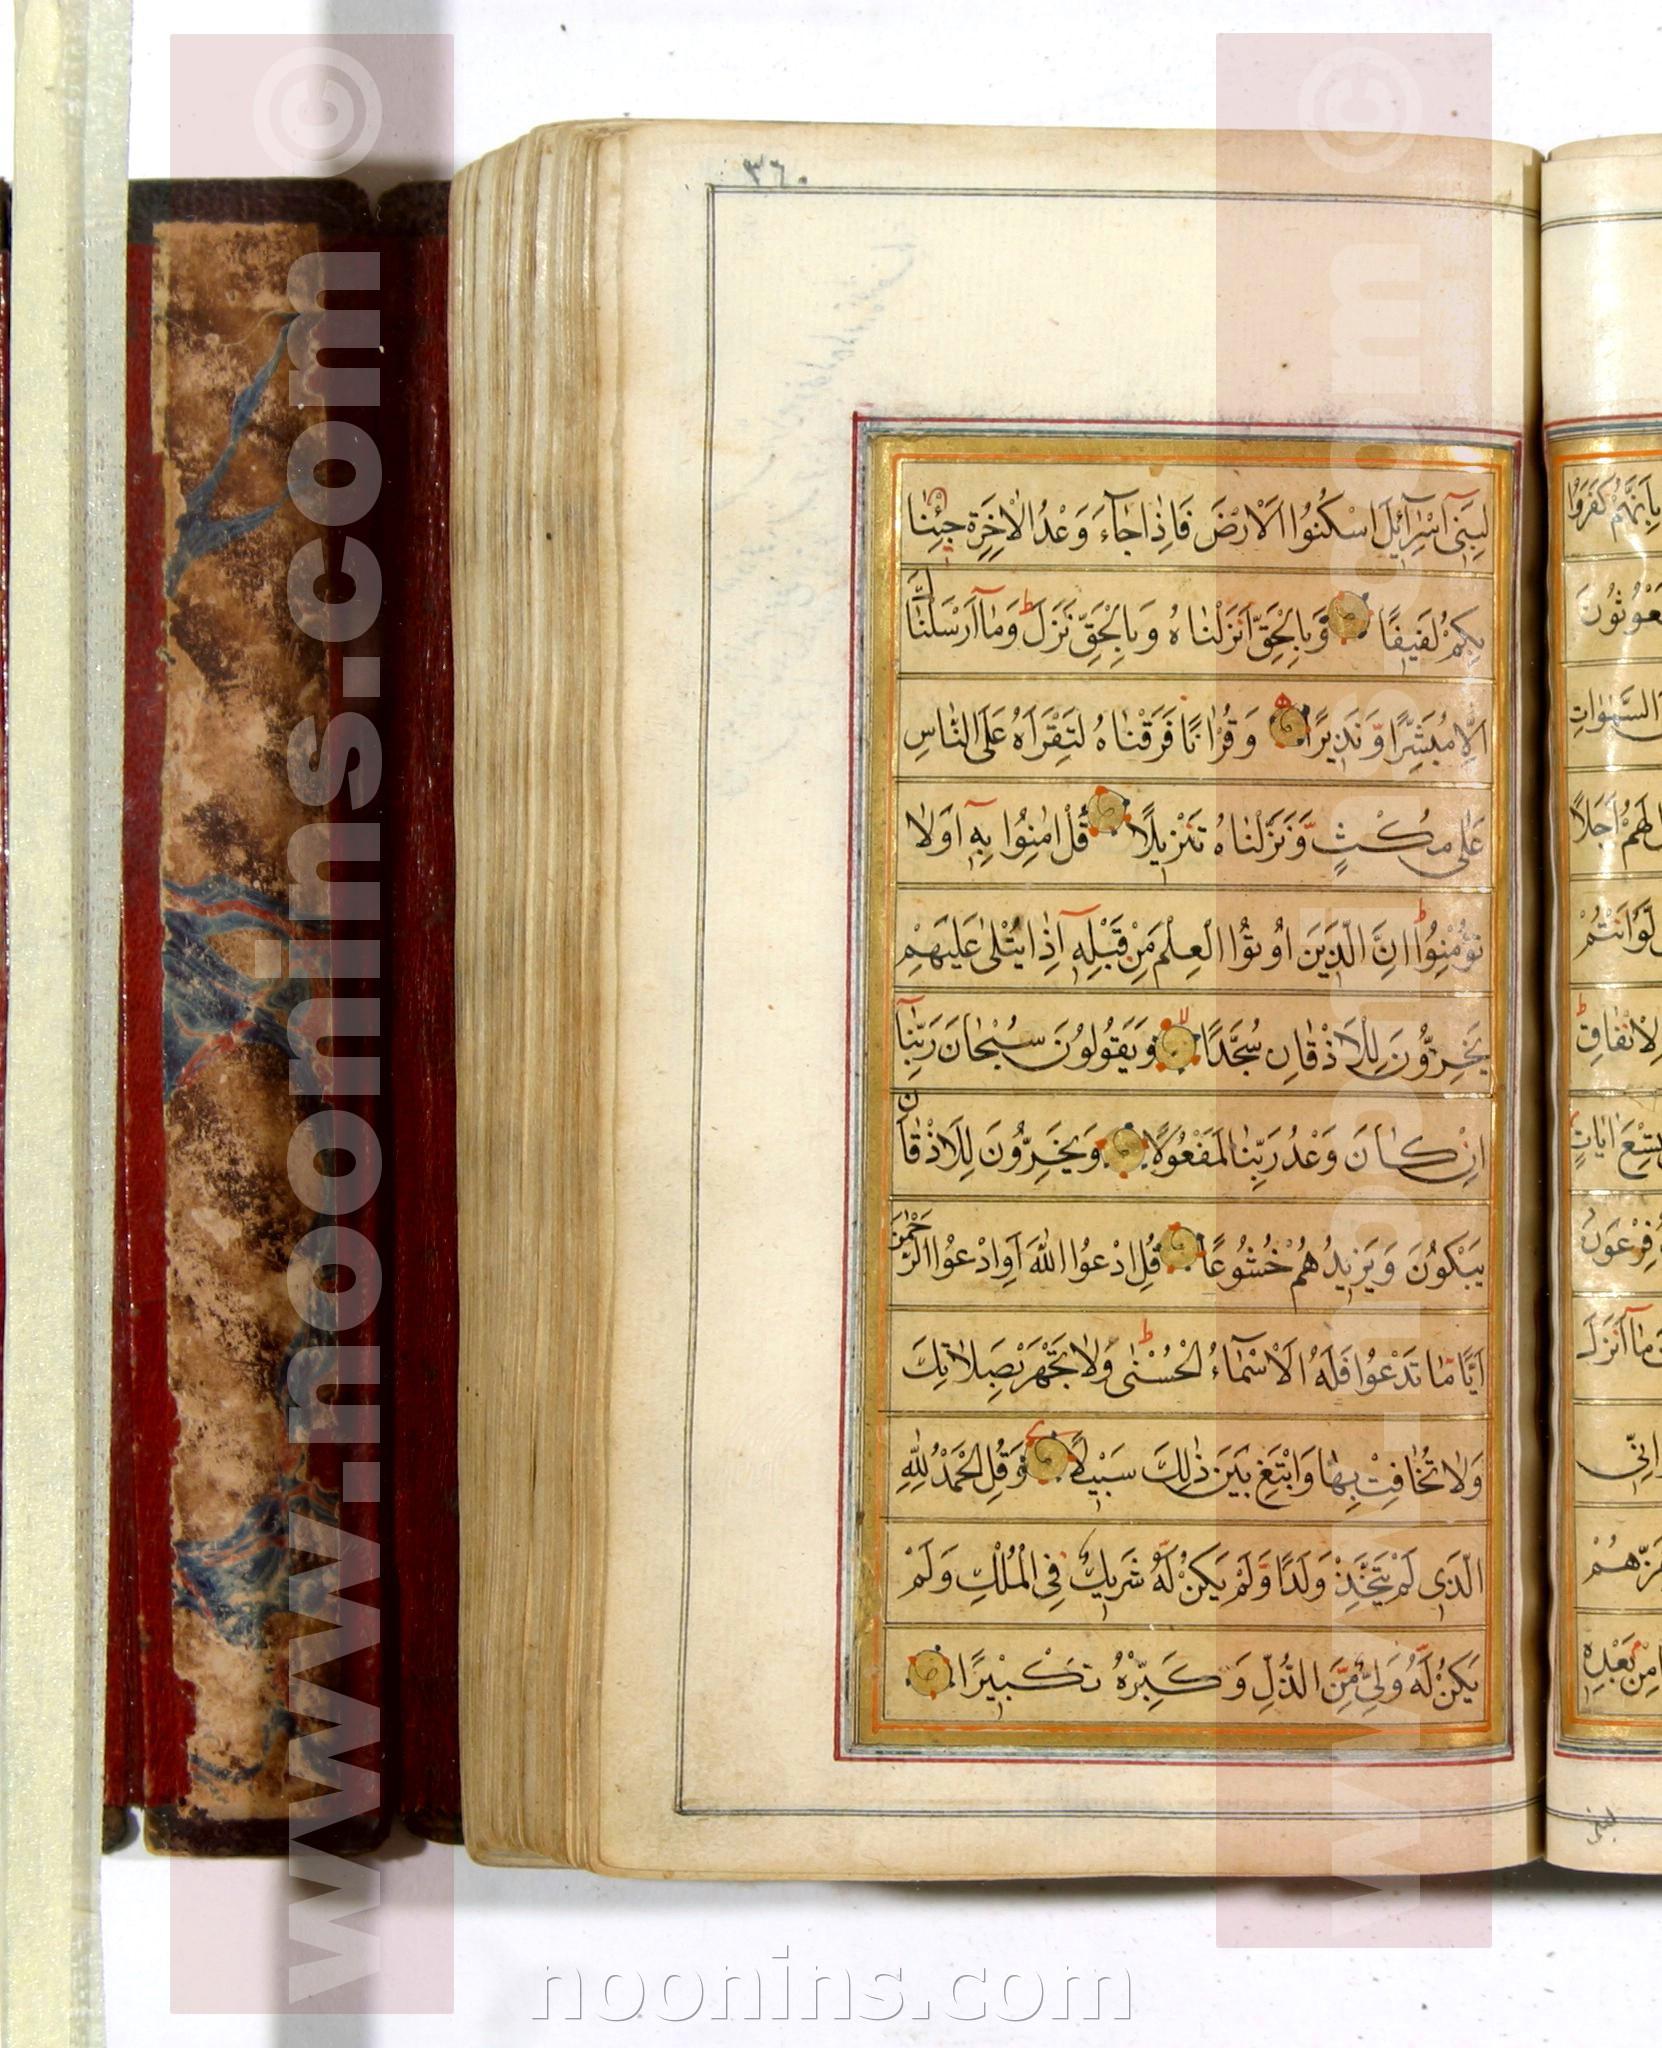 ٣٦٠
لِبَنِىٓ اِسْرَآئِيلَ اسْكُنُوا الْاَرْضَ فَاِذَا جَآءَ وَعْدُ الْاٰخِرَةِ جِئْنٰا
بِكُمْ لَفِيفًا وَبِالْحَقِّ اَنْزَلْنٰاهُ وَبِالْحَقِّ نَزَلَ وَمٰآ اَرْسَلْنٰاكَ
اِلّٰا مُبَشِّرًا وَّنَذِيرًا وَقُرْاٰنًا فَرَقْنٰاهُ لِتَقْرَاَهُ عَلَى النّٰاسِ
عَلٰى مُكْثٍ وَّنَزَّلْنٰاهُ تَنْزِيلًا قُلْ اٰمِنُوا بِهٖٓ اَوْ لٰا
تُؤْمِنُوا اِنَّ الَّذِينَ اُوتُوا الْعِلْمَ مِنْ قَبْلِهٖٓ اِذٰا يُتْلٰى عَلَيْهِمْ
يَخِرُّونَ لِلْاَذْقٰانِ سُجَّدًا وَيَقُولُونَ سُبْحٰانَ رَبِّنٰآ
اِنْ كٰانَ وَعْدُ رَبِّنٰا لَمَفْعُولًا وَيَخِرُّونَ لِلْاَذْقٰانِ
يَبْكُونَ وَيَزِيدُهُمْ خُشُوعًا قُلِ ادْعُوا اللّٰهَ اَوِ ادْعُوا الرَّحْمٰنَ
اَيًّا مٰا تَدْعُوا فَلَهُ الْاَسْمٰآءُ الْحُسْنٰى وَلٰا تَجْهَرْ بِصَلٰاتِكَ
وَلٰا تُخٰافِتْ بِهٰا وَابْتَغِ بَيْنَ ذٰلِكَ سَبِيلًا وَقُلِ الْحَمْدُ لِلّٰهِ
الَّذِى لَمْ يَتَّخِذْ وَلَدًا وَّلَمْ يَكُنْ لَّهُ شَرِيكٌ فِى الْمُلْكِ وَلَمْ
يَكُنْ لَّهُ وَلِىٌّ مِّنَ الذُّلِّ وَكَبِّرْهُ تَكْبِيرًا
بِاَنَّهُمْ كَفَرُوا
السَّمٰوٰاتِ
لَهُمْ اَجَلًا
لَّوْ اَنْتُمْ
الْاِنْفٰاقِ
تِسْعَ اٰيٰاتٍ
فِرْعَوْنُ
مٰآ اَنْزَلَ
وَاِنِّى
مِنْ بَعْدِهٖ
www.noonins.com ©
www.noonins.com ©
noonins.com